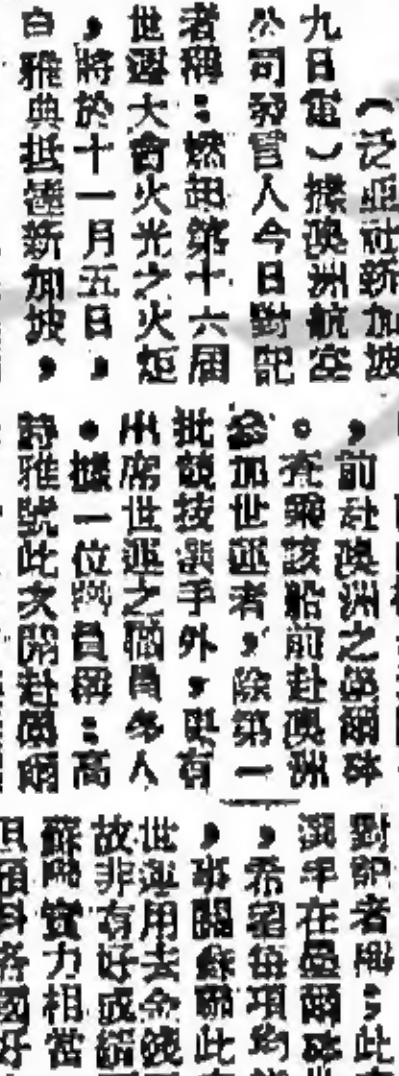 （泛亞社新加坡
九日電）據澳洲航空
公司發言人今日對記
者稱：燃起第十六屆
世運大會火光之火炬
，將於十一月五日，
自雅典抵達新加坡，
，前赴澳洲之墨爾砵
。在乘該船前赴澳洲
參加世運者，除第一
批競技選手外，更有
出席世運之職員多人
。據一位職員稱：高
號此次開赴墨爾
對記者稱：此
選手在墨爾砵世
，希望每項均
，事關蘇聯此
世運用去金錢
故非有好成績
蘇聯實力相當